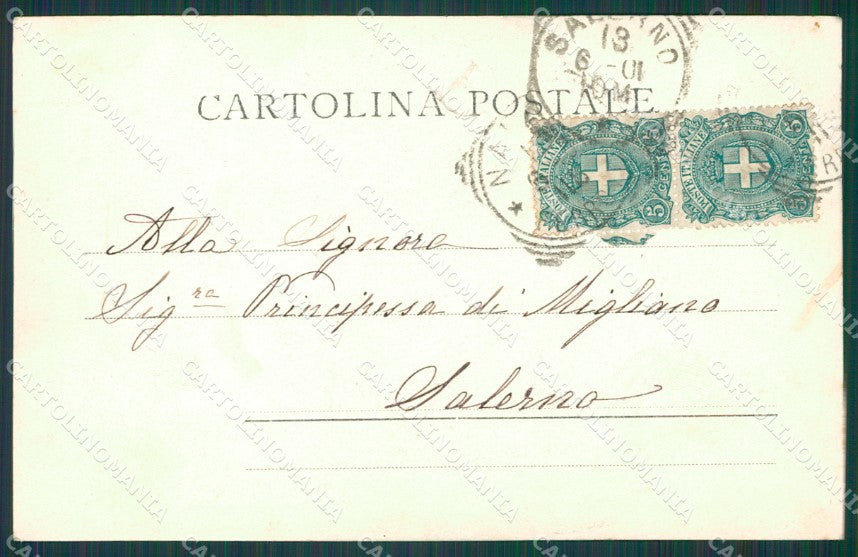 SALERNO
13
6-01
CARTOLINA POSTALE
POSTE ITALIANE
5
5
POSTE ITALIANE
5
5
Alla Signora
Sig.ra Principessa di Migliano
Salerno
CARTOLINOMANIA